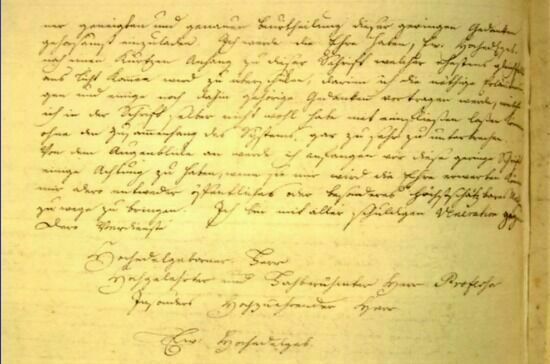 ner geneigten und genauen Beurtheilung dieser geringen Gedanken
gehorsamst einzuladen. Ich werde die Ehre haben, Ew. Hochedelgeb.
noch einen kurtzen Anhang zu dieser Schrift welcher ehestens
ans Licht kommen wird zu überschicken, darinn ich die nöthige Erläuterun
gen und einige noch dahin gehörige Gedanken vortragen werde, welche
ich in der Schrift selber nicht wohl habe mit einfließen laßen
ohne den Zusammenhang des Systems gar zu sehr zu unterbrechen
Von dem Augenblicke an werde ich anfangen vor diese geringe Schrift
einige Achtung zu haben, wenn sie mir wird die Ehre erworben
mir dero entweder öffentliches oder besonderes höchstschätzbares
zu wege zu bringen. Ich bin mit aller schuldigen Veneration gegen
Dero Verdienste
Hochedelgebohrner Herr
Hochgelahrter und Hochberühmter Herr Professor
Insonders Hochzuehrender Herr
Ew. Hochedelgeb.